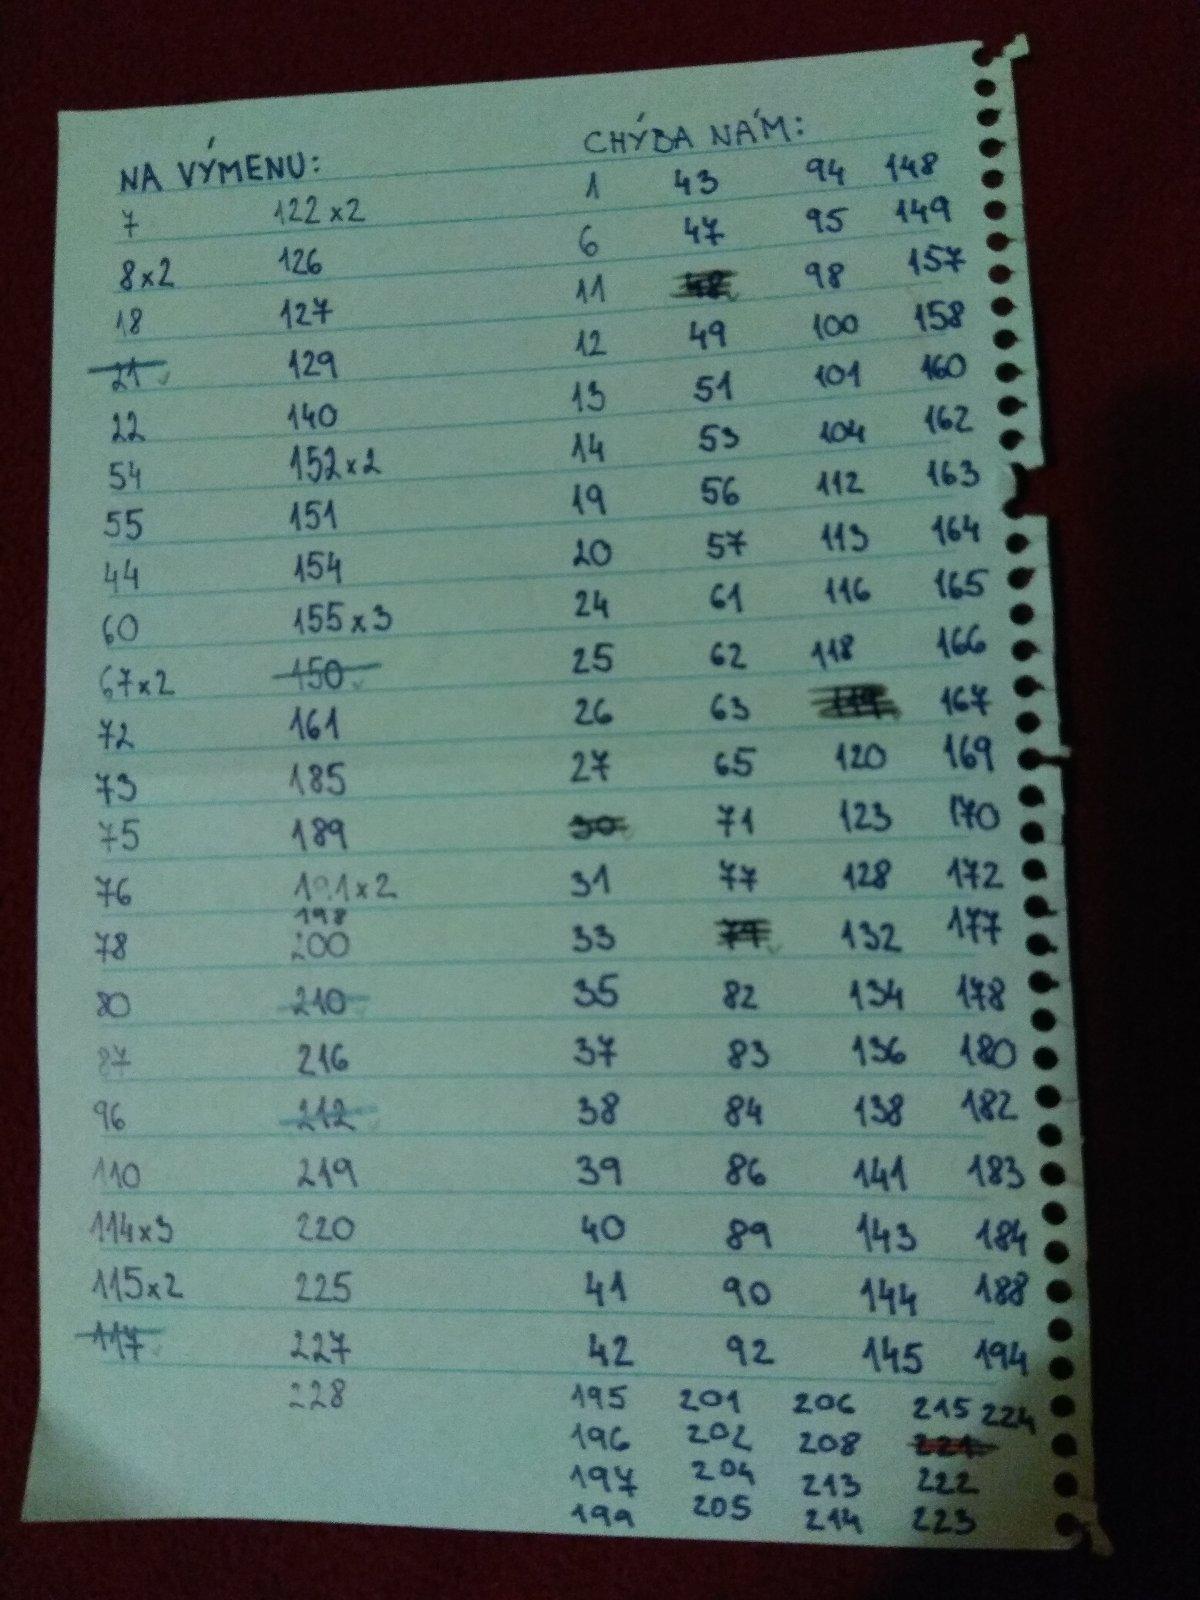 NA VÝMENU: CHÝBA NÁM:
7 122x2 1 43 94 148
8x2 126 6 47 95 149
18 127 11 48 98 157
21 129 12 49 100 158
22 140 13 51 101 160
54 152x2 14 53 104 162
55 151 19 56 112 163
44 154 20 57 113 164
60 155x3 24 61 116 165
67x2 150 25 62 118 166
72 161 26 63 119 167
73 185 27 65 120 169
75 189 30 71 123 170
76 191x2 31 77 128 172
198
78 200 33 79 132 177
80 210 35 82 134 178
87 216 37 83 136 180
96 212 38 84 138 182
110 219 39 86 141 183
114x3 220 40 89 143 184
115x2 225 41 90 144 188
117 227 42 92 145 194
228 195 201 206 215 224
196 202 208 221
197 204 213 222
199 205 214 223